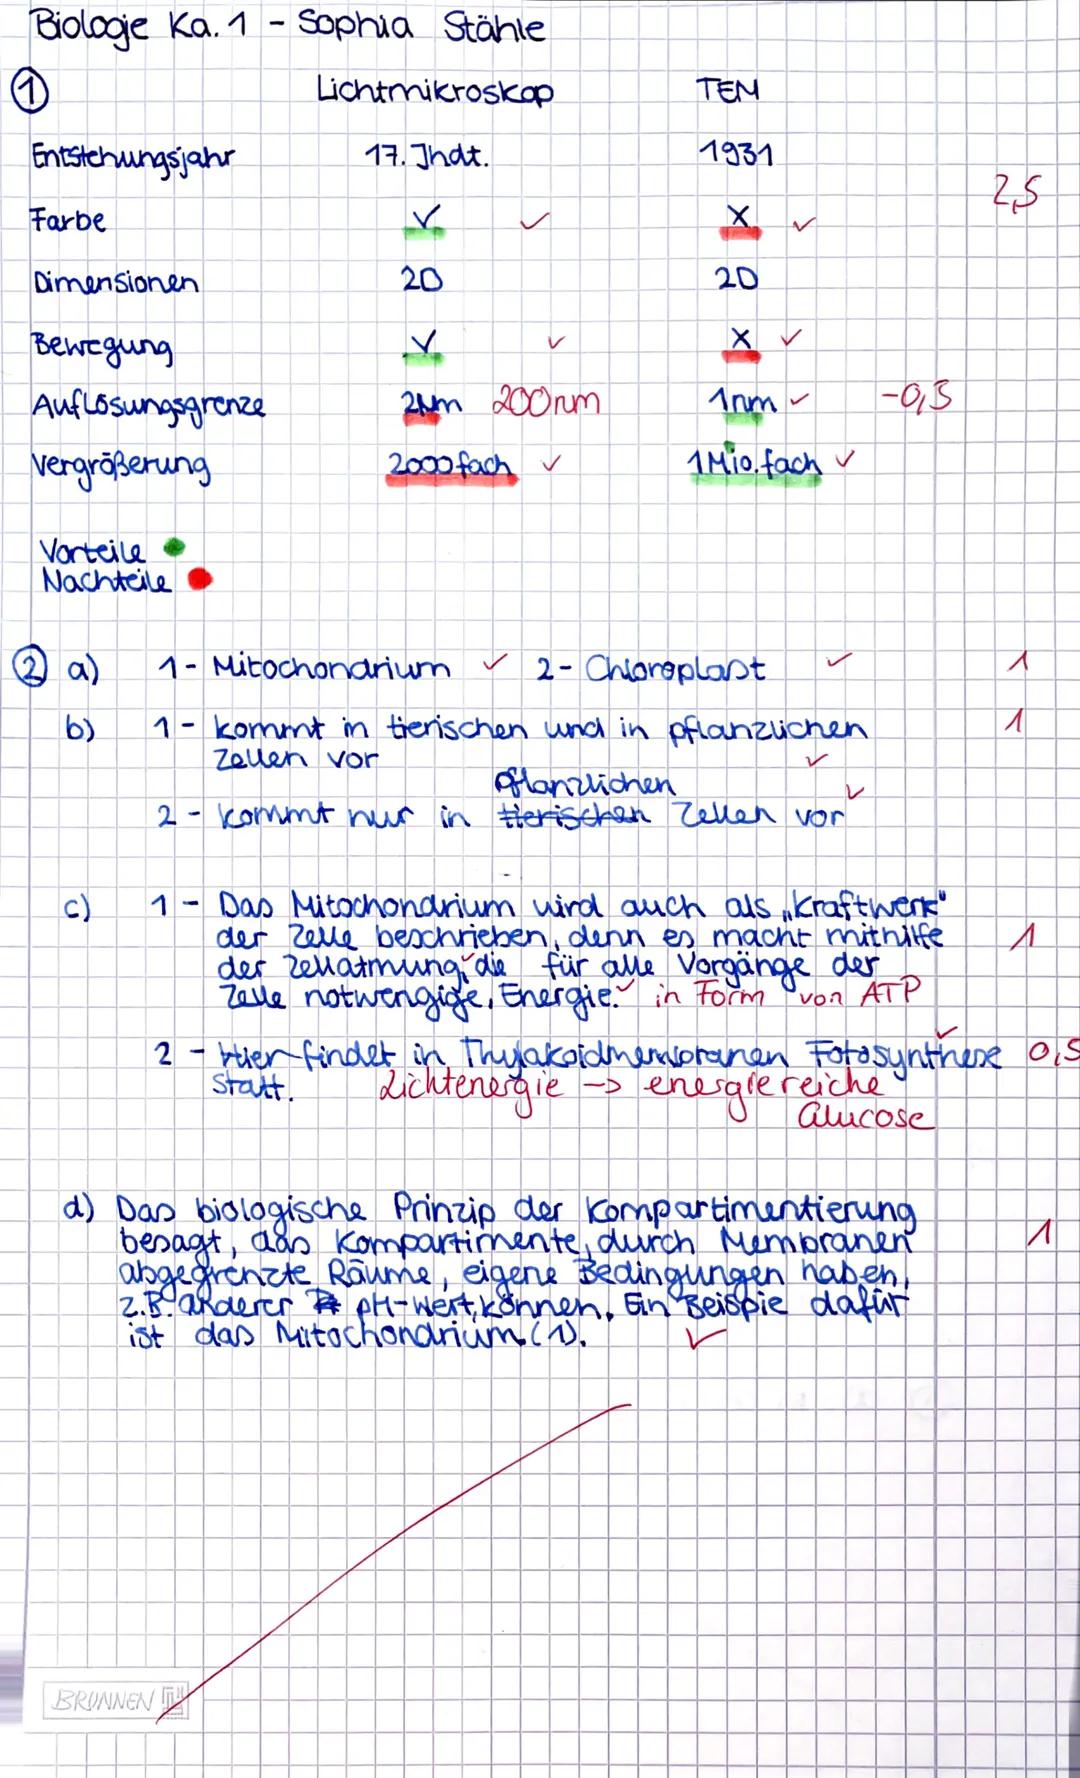 Biologie Ka. 1 - Sophia Stähle
① Lichtmikroskop TEM
Entstehungsjahr 17. Jhdt. 1931
2,5
Farbe ✓ ✓ X ✓
Dimensionen 2D 2D
Bewegung ✓ ✓ X ✓
Auflösungsgrenze 2µm 200nm 1nm ✓ -0,5
Vergrößerung 2000fach ✓ 1Mio.fach ✓
Vorteile
Nachteile
② a) 1- Mitochondrium ✓ 2- Chloroplast ✓ 1
b) 1- kommt in tierischen und in pflanzlichen 1
Zellen vor ✓
pflanzlichen ✓
2 - kommt nur in tierischen Zellen vor
c) 1 - Das Mitochondrium wird auch als „Kraftwerk"
der Zelle beschrieben, denn es macht mithilfe 1
der Zellatmung, ✓ die für alle Vorgänge der
Zelle notwengige, Energie. ✓ in Form von ATP
2 - Hier findet in Thylakoidmembranen Fotosynthese ✓ 0,5
statt. Lichtenergie -> energiereiche
Glucose
d) Das biologische Prinzip der Kompartimentierung
besagt, das Kompartimente, durch Membranen 1
abgegrenzte Räume, eigene Bedingungen haben,
z.B. anderer pH-Wert, können. Ein Beispie dafür
ist das Mitochondrium. (1). ✓
BRUNNEN